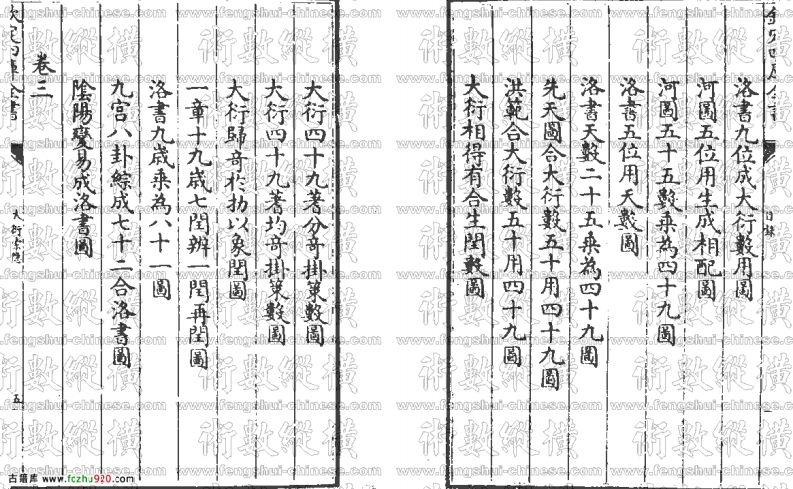 洛書九位成大衍數用圖
河圖五位用生成相配圖
河圖五十五數乘為四十九圖
洛書五位用天數圖
洛書天數二十五乘為四十九圖
先天圖合大衍數五十用四十九圖
洪範合大衍數五十用四十九圖
大衍相得有合生閏數圖
大衍四十九蓍分奇掛策數圖
大衍四十九蓍均奇掛策數圖
大衍歸奇於扐以象閏圖
一章十九歲七閏辨一閏再閏圖
洛書九歲乘為八十一圖
九宮八卦綜成七十二合洛書圖
陰陽變易成洛書圖
卷三
欽定四庫全書
目錄
大衍索隱
五
術數縱橫
www.fengshui-chinese.com
古籍库 www.fczhu920.com